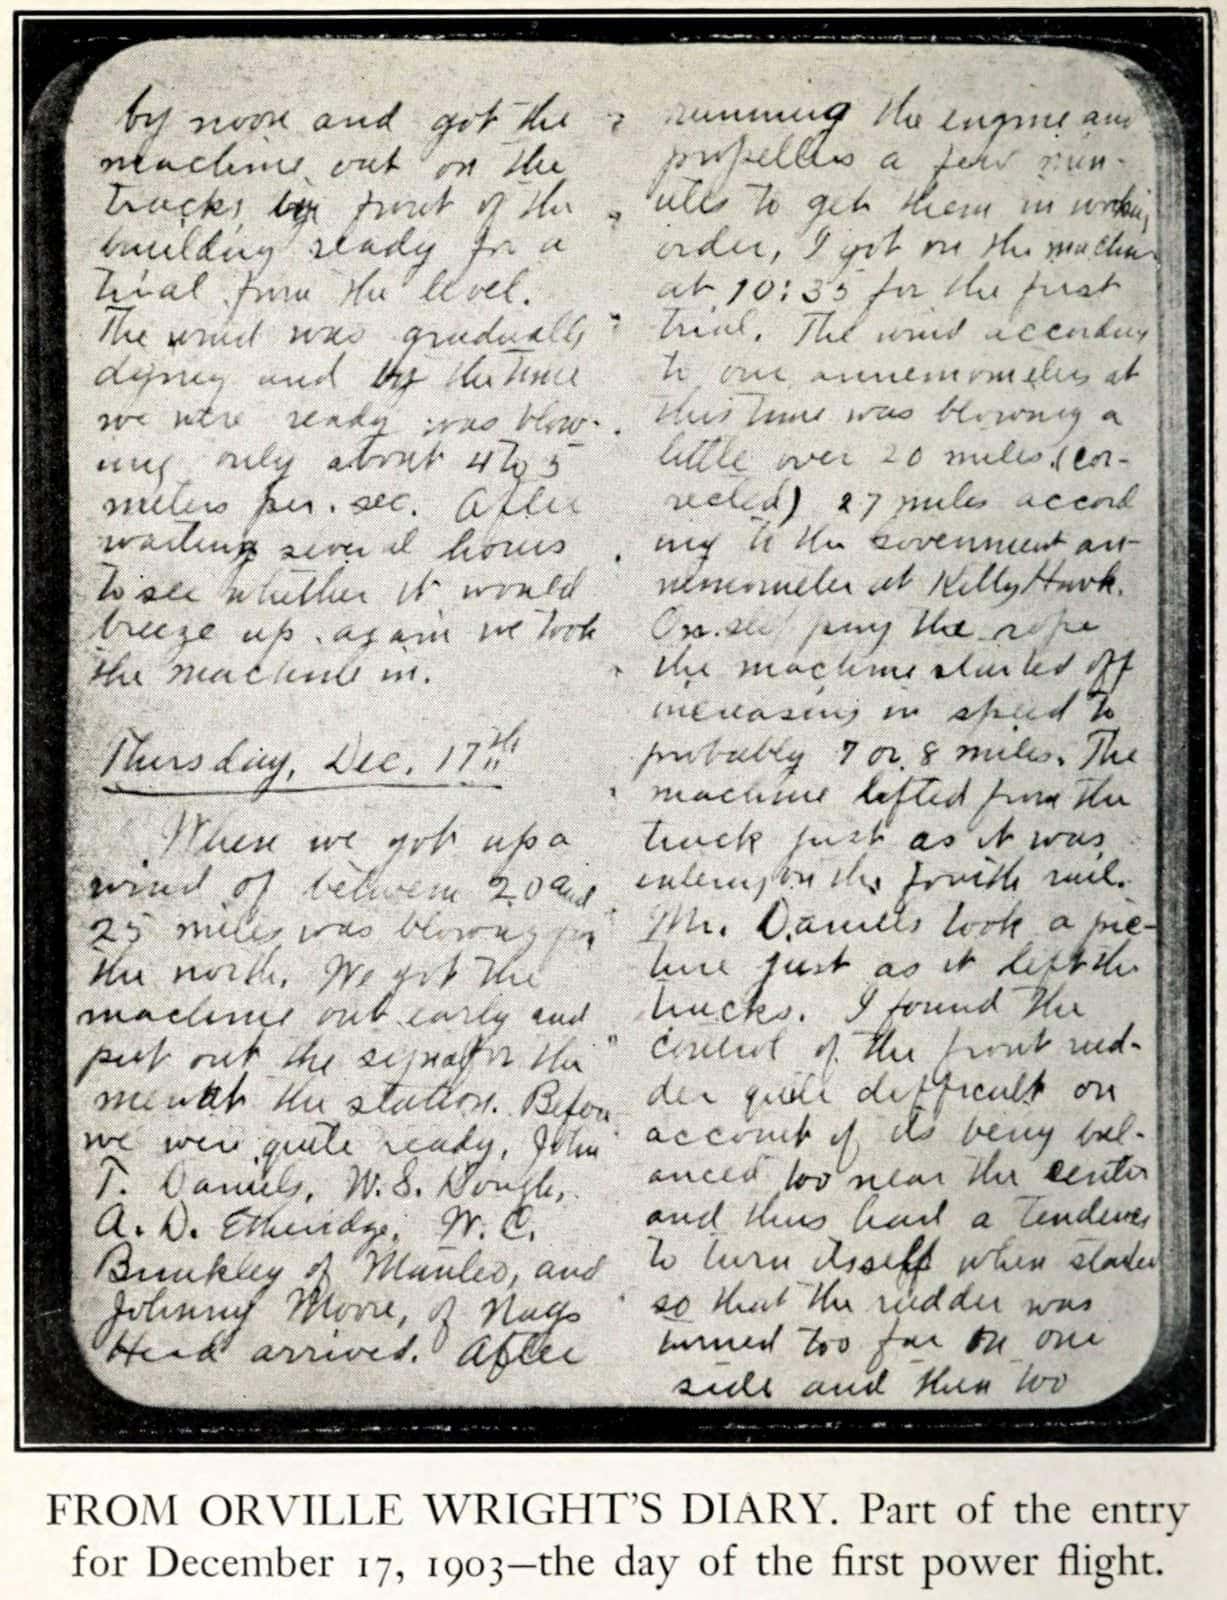 by noon and got the
machine out on the
tracks in front of the
building ready for a
trial from the level.
The wind was gradually
dying and by the time
we were ready was blow-
ing only about 4 to 5
meters per. sec. After
waiting several hours
to see whether it would
breeze up again we took
the machine in.
Thursday, Dec. 17th
When we got up a
wind of between 20 and
25 miles was blowing from
the north. We got the
machine out early and
put out the signal for the
men at the station. Before
we were quite ready, John
T. Daniels, W. S. Dough,
A. D. Etheridge, W. C.
Brinkley of Manteo, and
Johnny Moore, of Nags
Head arrived. After
running the engine and
propellers a few min-
utes to get them in working
order, I got on the machine
at 10:35 for the first
trial. The wind according
to our annemometers at
this time was blowing a
little over 20 miles (cor-
rected) 27 miles accord
ing to the Government an-
nemometer at Kitty Hawk.
On slipping the rope
the machine started off
increasing in speed to
probably 7 or 8 miles. The
machine lifted from the
truck just as it was
entering on the fourth rail.
Mr. Daniels took a pic-
ture just as it left the
tracks. I found the
control of the front rud-
der quite difficult on
account of its being bal-
anced too near the center
and thus had a tendency
to turn itself when started
so that the rudder was
turned too far on one
side and then too
FROM ORVILLE WRIGHT'S DIARY. Part of the entry
for December 17, 1903—the day of the first power flight.